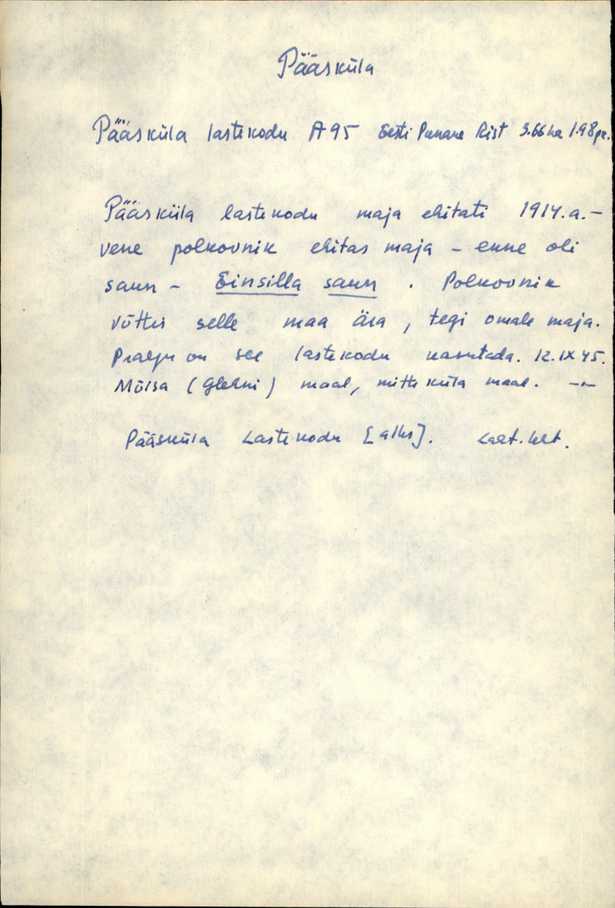 Pääsküla
Pääsküla lastekodu A95 Eesti Punane Rist 3.66 ha 1.98 pr.
Pääsküla lastekodu maja ehitati 1914.a. –
vene polkovnik ehitas maja – enne oli
saun – Einsilla saun . Polkovnik
võttis selle maa ära, tegi omale maja.
Praegu on see lastekodu kasutada. 12.IX 45.
Mõisa (Glehni) maal, mitte küla maal. –
Pääsküla Lastekodu